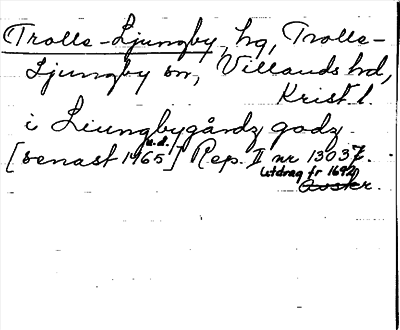 Trolle-Ljungby hg, Trolle-
Ljungby sn, Villands hd,
Krist. l.
i Liungbygårdz godz.
[senast 1465] Rep. II nr 13037.
a.d.
(utdrag fr 1692)
Avskr.